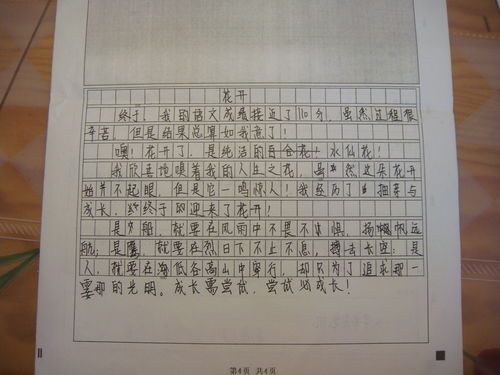 花开
终于，我的语文成绩接近了110分，虽然过程很
辛苦，但是结果总算如我意了！
噢！花开了，是纯洁的百合花！水仙花！
我欣喜地嗅着我的人生之花，虽然这朵花开
始并不起眼，但是它一鸣惊人！我经历了挫辱与
成长，终于迎来了花开！
是船，就要在风雨中不畏不惧，扬帆远
航；是鹰，就要在烈日下不止不息，搏击长空；是
人，就要在低谷高山中穿行，却只为了追求那一
霎那的光明。成长需尝试，尝试必成长！
第4页 共4页